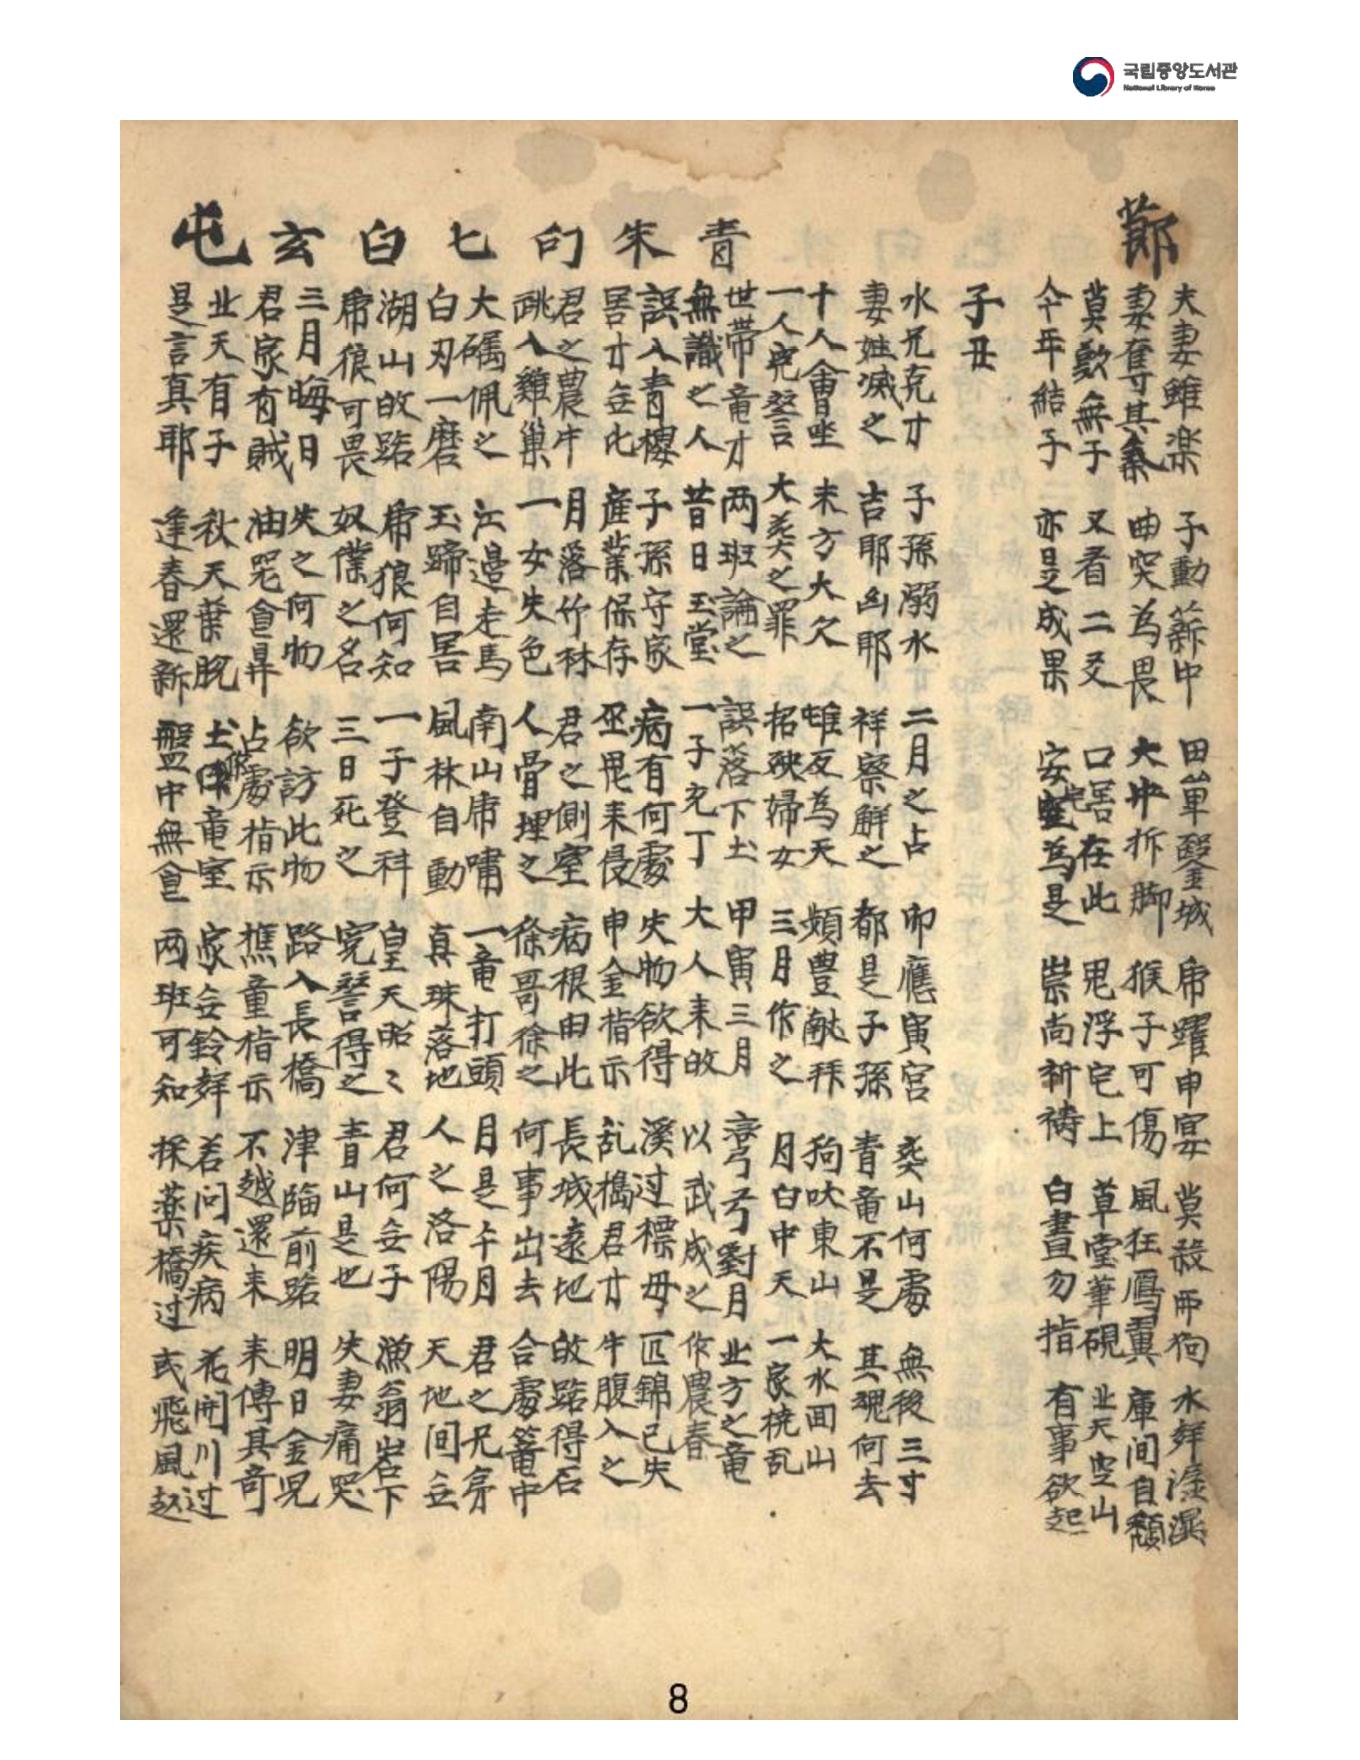 국립중앙도서관
National Library of Korea
節
夫妻雖楽 子動新中 田單鑿城 帍躍申宴 莫殺帀狗 水姅濕
妻奪其氣 曲突為畏 大牛折脚 猴子可傷 風狂鳫翼 庫间自頽
莫歎無子 又看二爻 口害在此 鬼浮宅上 草堂筆硯 业天空山
今年結子 亦是成果 安宅為是 崇尚祈祷 白晝勿指 有事欲起
子丑
水兄克才 子孫溺水 二月之占 卯應寅宫 葬山何處 無後三寸
妻姓滅之 吉耶凶耶 祥察解之 都是子孫 青竜不是 其魂何去
十人會坐 末方大欠 雖友為天 頻豊献拜 狗吠東山 大水回山
一人寃誓言 大葬之罪 招殃婦女 三月作之 月白中天 一家撓乱
青
世帶竜才 两班論之 誤落下土 甲寅三月 弯弓對月 业方之竜
無識之人 昔日玉堂 一子充丁 大人来故 以武成之 作農春
朱
誤入青樓 子孫守家 病有何處 失物欲得 溪过標母 匹錦已失
害才无化 産業保存 巫畏来侵 申金指示 乱搗君才 牛腹入之
句
君之農牛 月落竹林 君之側室 病根由此 長城遠地 故踣得石
跳入雞巢 一女失色 人骨埋之 徐哥徐之 何事出去 合處篭中
七
大碼佩之 江邉走馬 南山帍嘯 一竜打頭 月是午月 君之兄弟
白刃一磨 玉蹄自害 風林自動 真珠落地 人之洛陽 天地间无
白
湖山故踣 帍狼何知 一子登科 皇天昭〻 君何无子 漁翁岩下
帍狼可畏 奴僕之名 三日死之 寃誓得之 青山是也 失妻痛哭
玄
三月晦日 失之何物 欲訪此物 路入長橋 津臨前踣 明日金児
君家有賊 油器食鼎 占處指示 樵童指示 不越還来 来傳其奇
屯
业天有子 秋天葉脱 土竜室 家无鈴姅 若问疾病 花開川过
是言真耶 逢春還新 盤中無食 两班可知 採薬橋过 或飛風赵
8